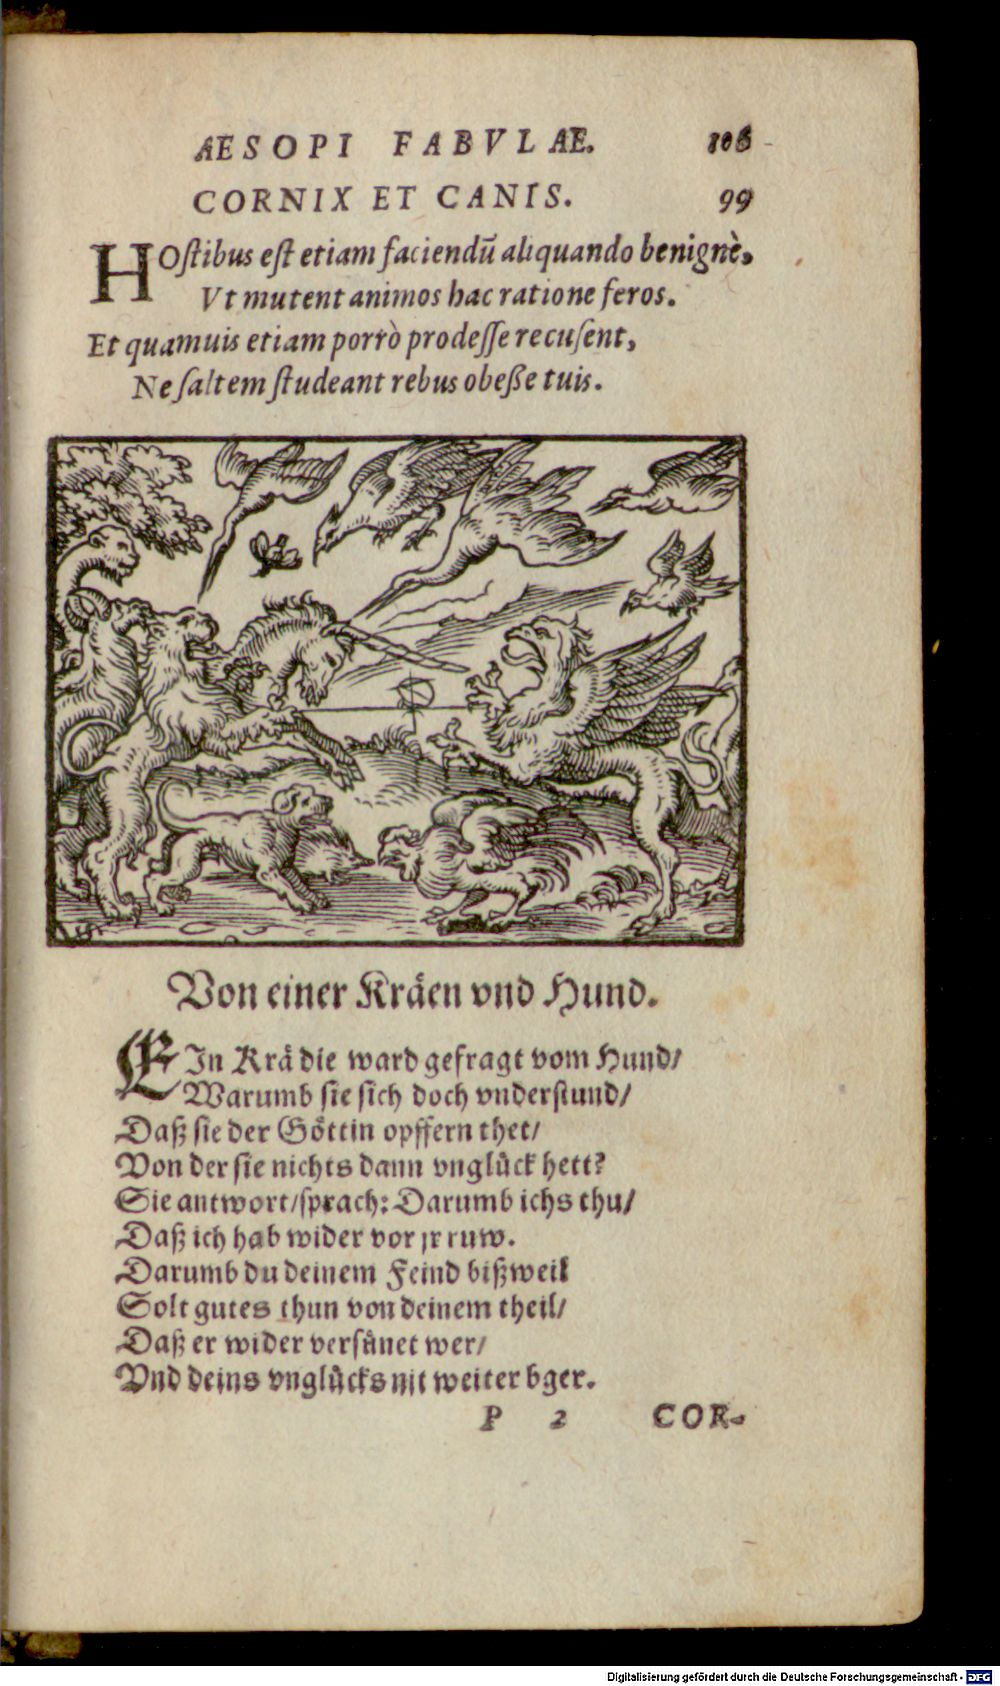 AESOPI FABVLAE. 108
CORNIX ET CANIS. 99
HOſtibus eſt etiam faciendũ aliquando benignè,
Vt mutent animos hac ratione feros.
Et quamuis etiam porrò prodeſſe recuſent,
Ne ſaltem ſtudeant rebus obeße tuis.
Von einer Kråen vnd Hund.
EIn Krå die ward gefragt vom Hund/
Warumb ſie ſich doch vnderſtund/
Daß ſie der Göttin opffern thet/
Von der ſie nichts dann vnglůck hett?
Sie antwort/ſprach: Darumb ichs thu/
Daß ich hab wider vor jr ruw.
Darumb du deinem Feind bißweil
Solt gutes thun von deinem theil/
Daß er wider verſůnet wer/
Vnd deins vnglůcks nit weiter bger.
P 2 COR-
Digitalisierung gefördert durch die Deutsche Forschungsgemeinschaft - DFG